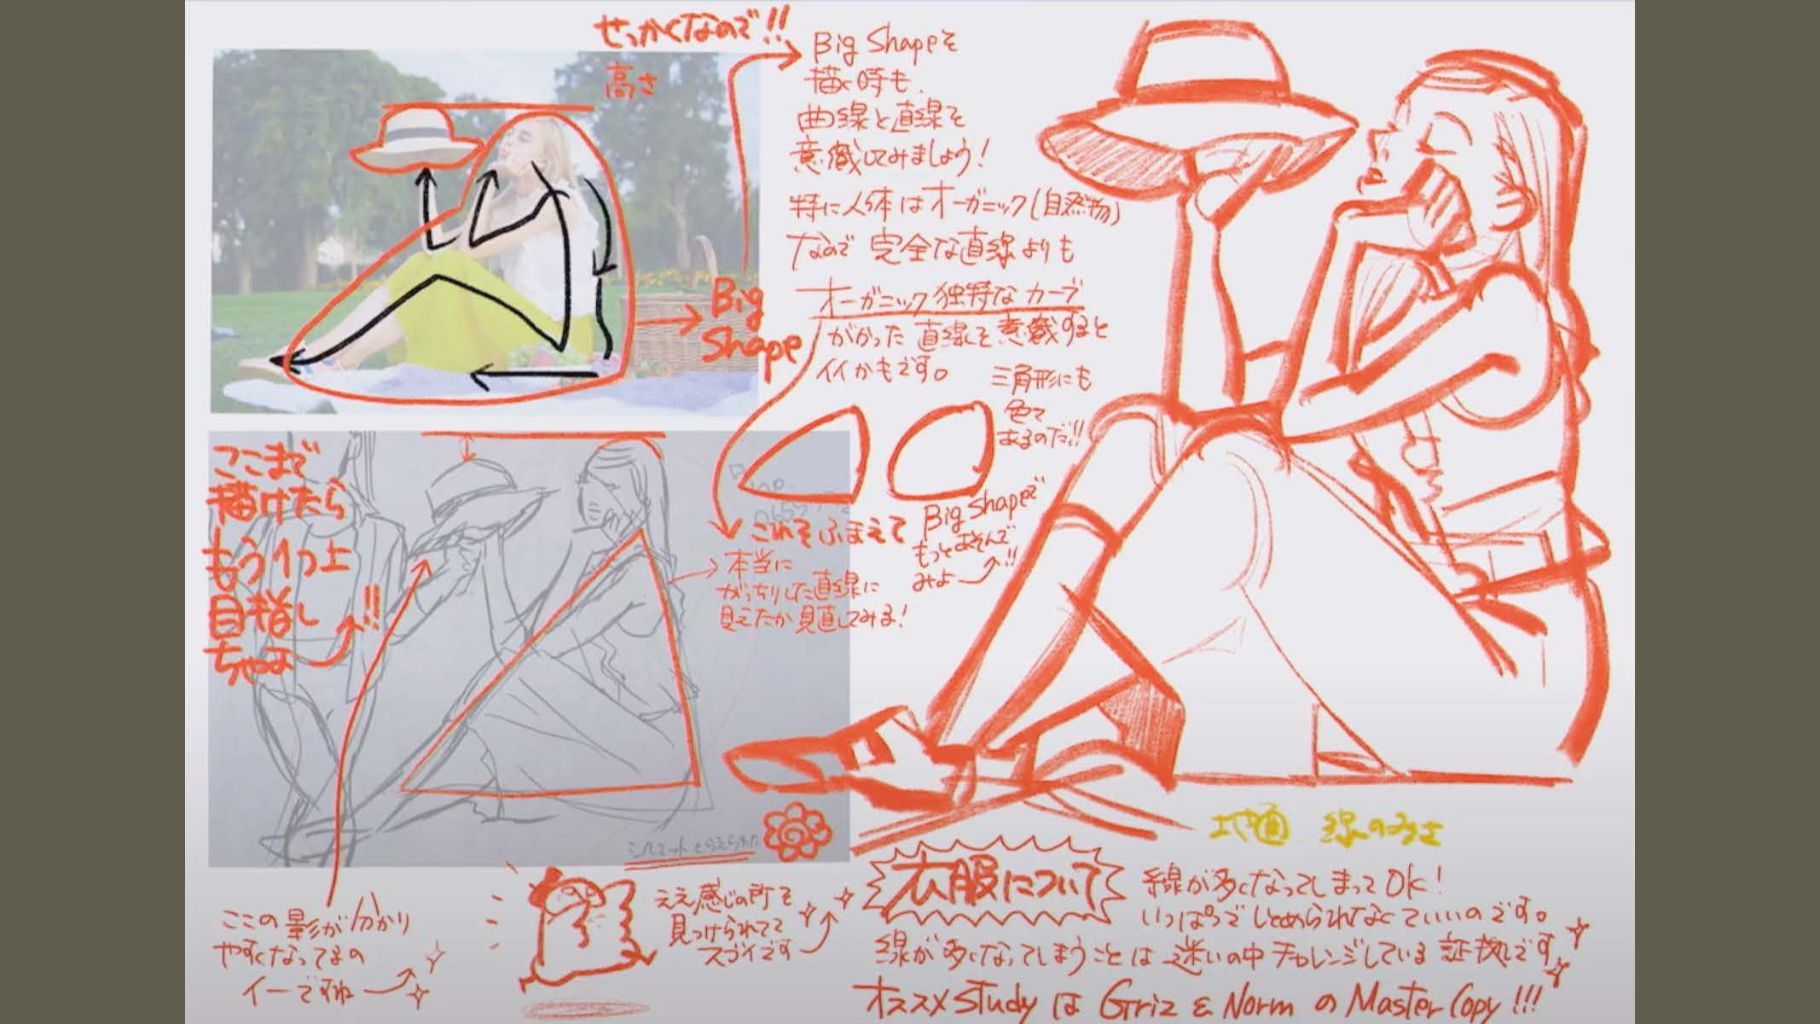 せっかくなので!!
高さ
Big Shapeを
描く時も、
曲線と直線を
意識してみましょう!
特に人体はオーガニック(自然物)
なので 完全な直線よりも
オーガニック独特なカーブ
がかった直線を意識すると
イイかもです。
Big
Shape
三角形にも
色々
あるのだ!!
Big Shapeで
もっとあそんで
みよ!!
これをふまえて
本当に
がっちりした直線に
見えたか見直してみる!
ここまで
描けたら
もう1つ上
目指し
ちゃお!!
シルエットとらえられた
地面 線のみさ
ここの影が分かり
やすくなってるの
イーですね
ええ感じの所を
見つけられてて
スゴイです
衣服について
線が多くなってしまってOK!
いっぱつでしとめられなくていいのです。
線が多くなってしまうことは迷いの中チャレンジしている証拠です
オススメStudyは Griz & Norm の Master Copy!!!